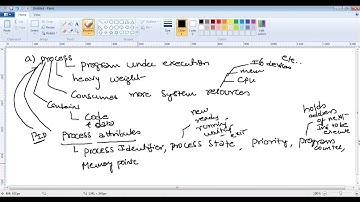 a) process
program under execution
heavy weight
Consumes more System resources
I/o devices
etc..
mem
CPU
Contains
Code
& data
PID
Process attributes
new
ready
running
waiting
exit
holds
address
of next
Ins to be
execute
process Identifier, process State, Priority, program
counter,
Memory pointe